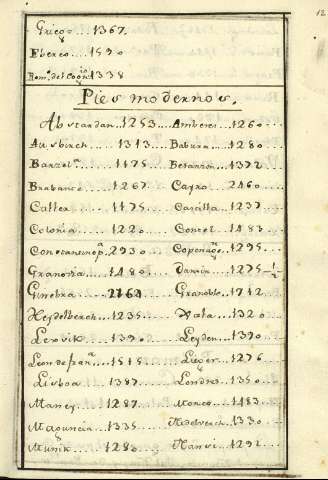 12
Griego....1367
Ebreo....1590
Rom. del Cog.....1338
Pies modernos.
Abstardan..1253..Amberes..1260
Ausbirch....1313..Babiera..1280
Barzel.ª....1175..Besanzon..1372
Brabante....1267..Cayro..2460
Caller....1175..Castilla..1237
Colonia....1220
Constantinop.ª..2930..Copenag.e..1295
Granoria....1480..Dancia..1275 1/2
Ginebra....Granoble..1712
Heydelberch..1235..1320
1390..Leyden..1390
Leon de fran.ª..1515..1276
Lisboa....1387..Londres..1350
1287..1483
Maguncia....1335..1330
Munik....1280..1292